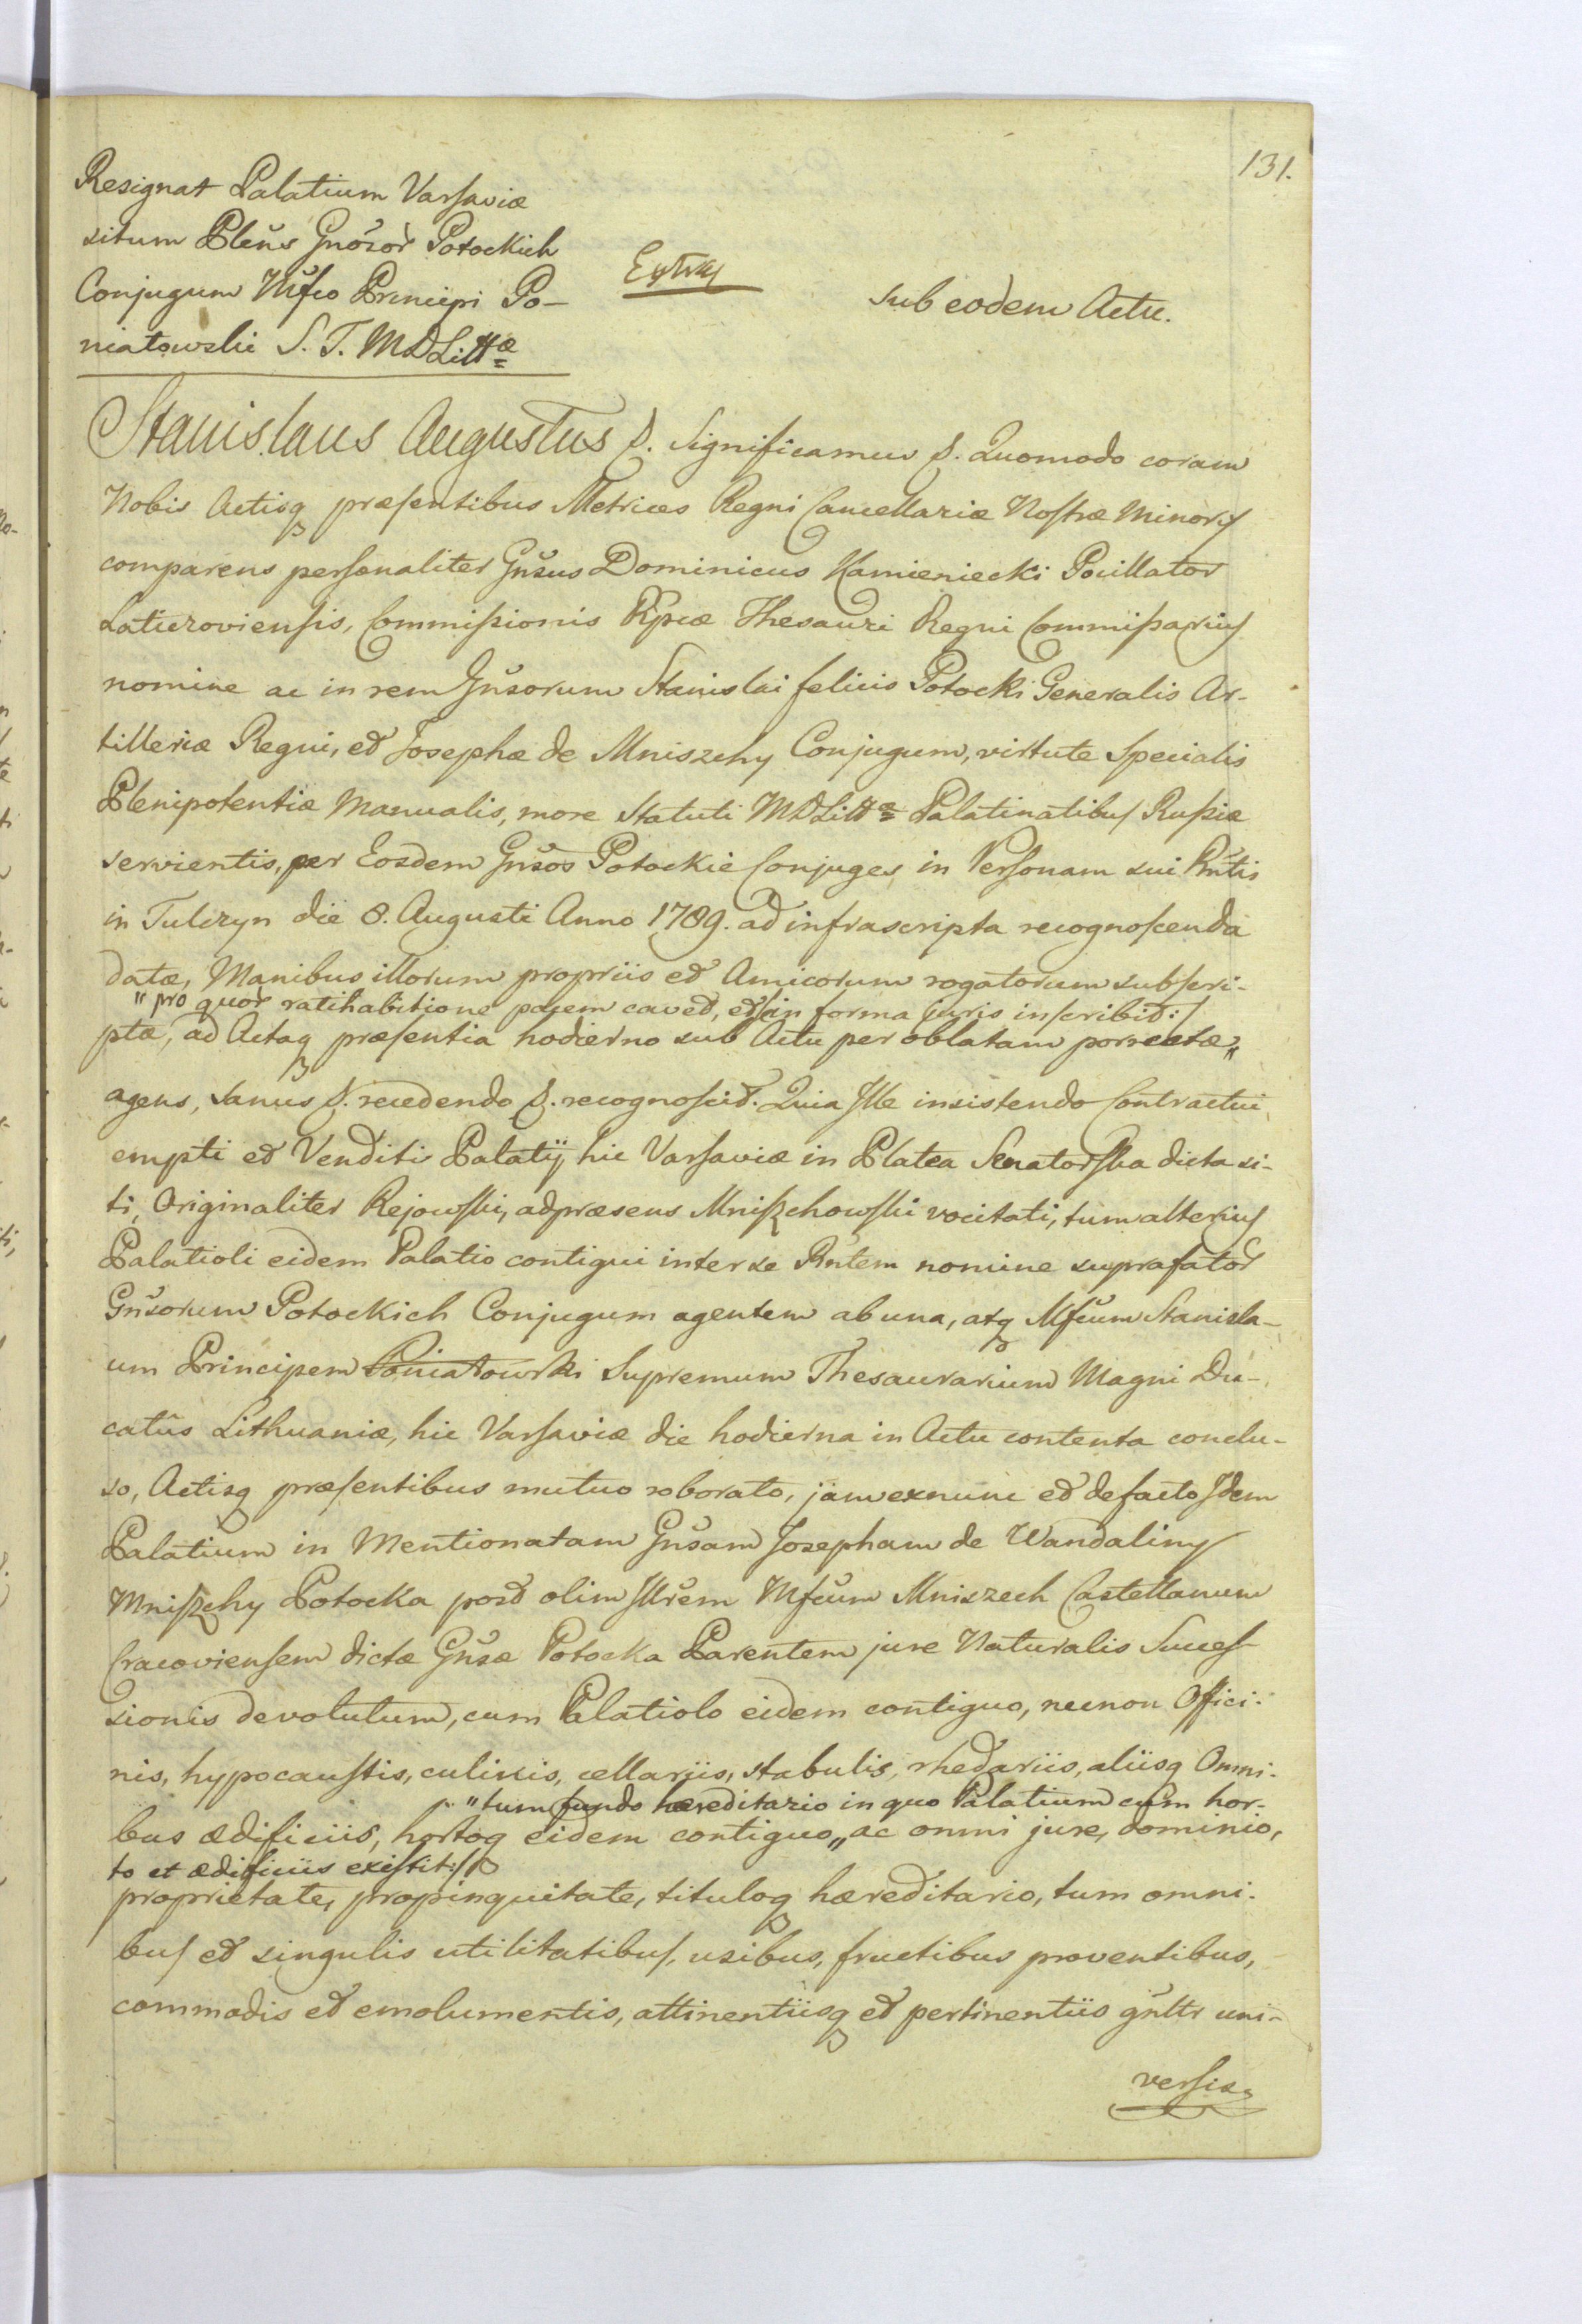 131.
Resignat Palatium Varsaviæ
situm Plens Gnosor Potockich
Conjugum Mfco Principi Po-
niatowski S. T. MDLittæ
Extr
sub eodem Actu.
Stanislaus Augustus &. Significamus &. Quomodo coram
Nobis Actisq præsentibus Metrices Regni Cancellariæ Nostræ Minoris
comparens personaliter Gnsus Dominicus Kamieniecki Pocillator
Laticzoviensis, Commissionis Rpcæ Thesauri Regni Commissarius
nomine ac in rem Gnsorum Stanislai felicis Potocki Generalis Ar-
tilleriæ Regni, et Josephæ de Mniszchy Conjugum, virtute Specialis
Plenipotentiæ Manualis, more Statuti MDLittæ Palatinatibus Russiæ
servientis, per Eosdem Gnsos Potockie Conjuges in Personam sui Rntis
in Tulczyn die 8. Augusti Anno 1789. ad infrascripta recognoscenda
datæ, Manibus illorum propriis et Amicorum rogatorum subscri-
" pro quor ratihabitione parem cavet, et in forma juris inscribit:/
ptæ, ad Actaq præsentia hodierno sub Actu per oblatam porrectæ,,
agens, sanus &. recedendo &. recognoscit. Quia Ille insistendo Contractui
empti et Venditi Palatij, hic Varsaviæ in Platea Senatorska dicta si-
ti, Originaliter Rejowski, adpræsens Mniszchowski vocitati, tum alterius
Palatioli eidem Palatio contigui inter se Rntem nomine suprafator
Gnsorum Potockich Conjugum agentem ab una, atq Mfcum Stanisla-
um Principem Poniatowski Supremum Thesaurarium Magni Du-
catûs Lithuaniæ, hic Varsaviæ die hodierna in Actu contenta conclu-
so, Actisq præsentibus mutuo roborato, jam exnunc et defacto Idem
Palatium in Mentionatam Gnsam Josepham de Wandaliny
Mniszchy Potocka post olim Illrem Mfcum Mniszech Castellanum
Cracoviensem dictæ Gnsæ Potocka Parentem jure Naturalis Succes-
sionis devolutum, cum Palatiolo eidem contiguo, necnon Offici-
nis, hypocaustis, culinis, cellariis, stabulis, rhedariis, aliisq Omni-
/: " tum fundo hæreditario in quo Palatium cum hor-
bus ædificiis, hortoq eidem contiguo,, ac omni jure, dominio,
to et ædificiis existit:/
proprietate, propinquitate, tituloq hæreditario, tum omni-
bus et singulis utilitatibus, usibus, fructibus proventibus,
commodis et emolumentis, attinentiisq et pertinentiis gnltr uni-
versis